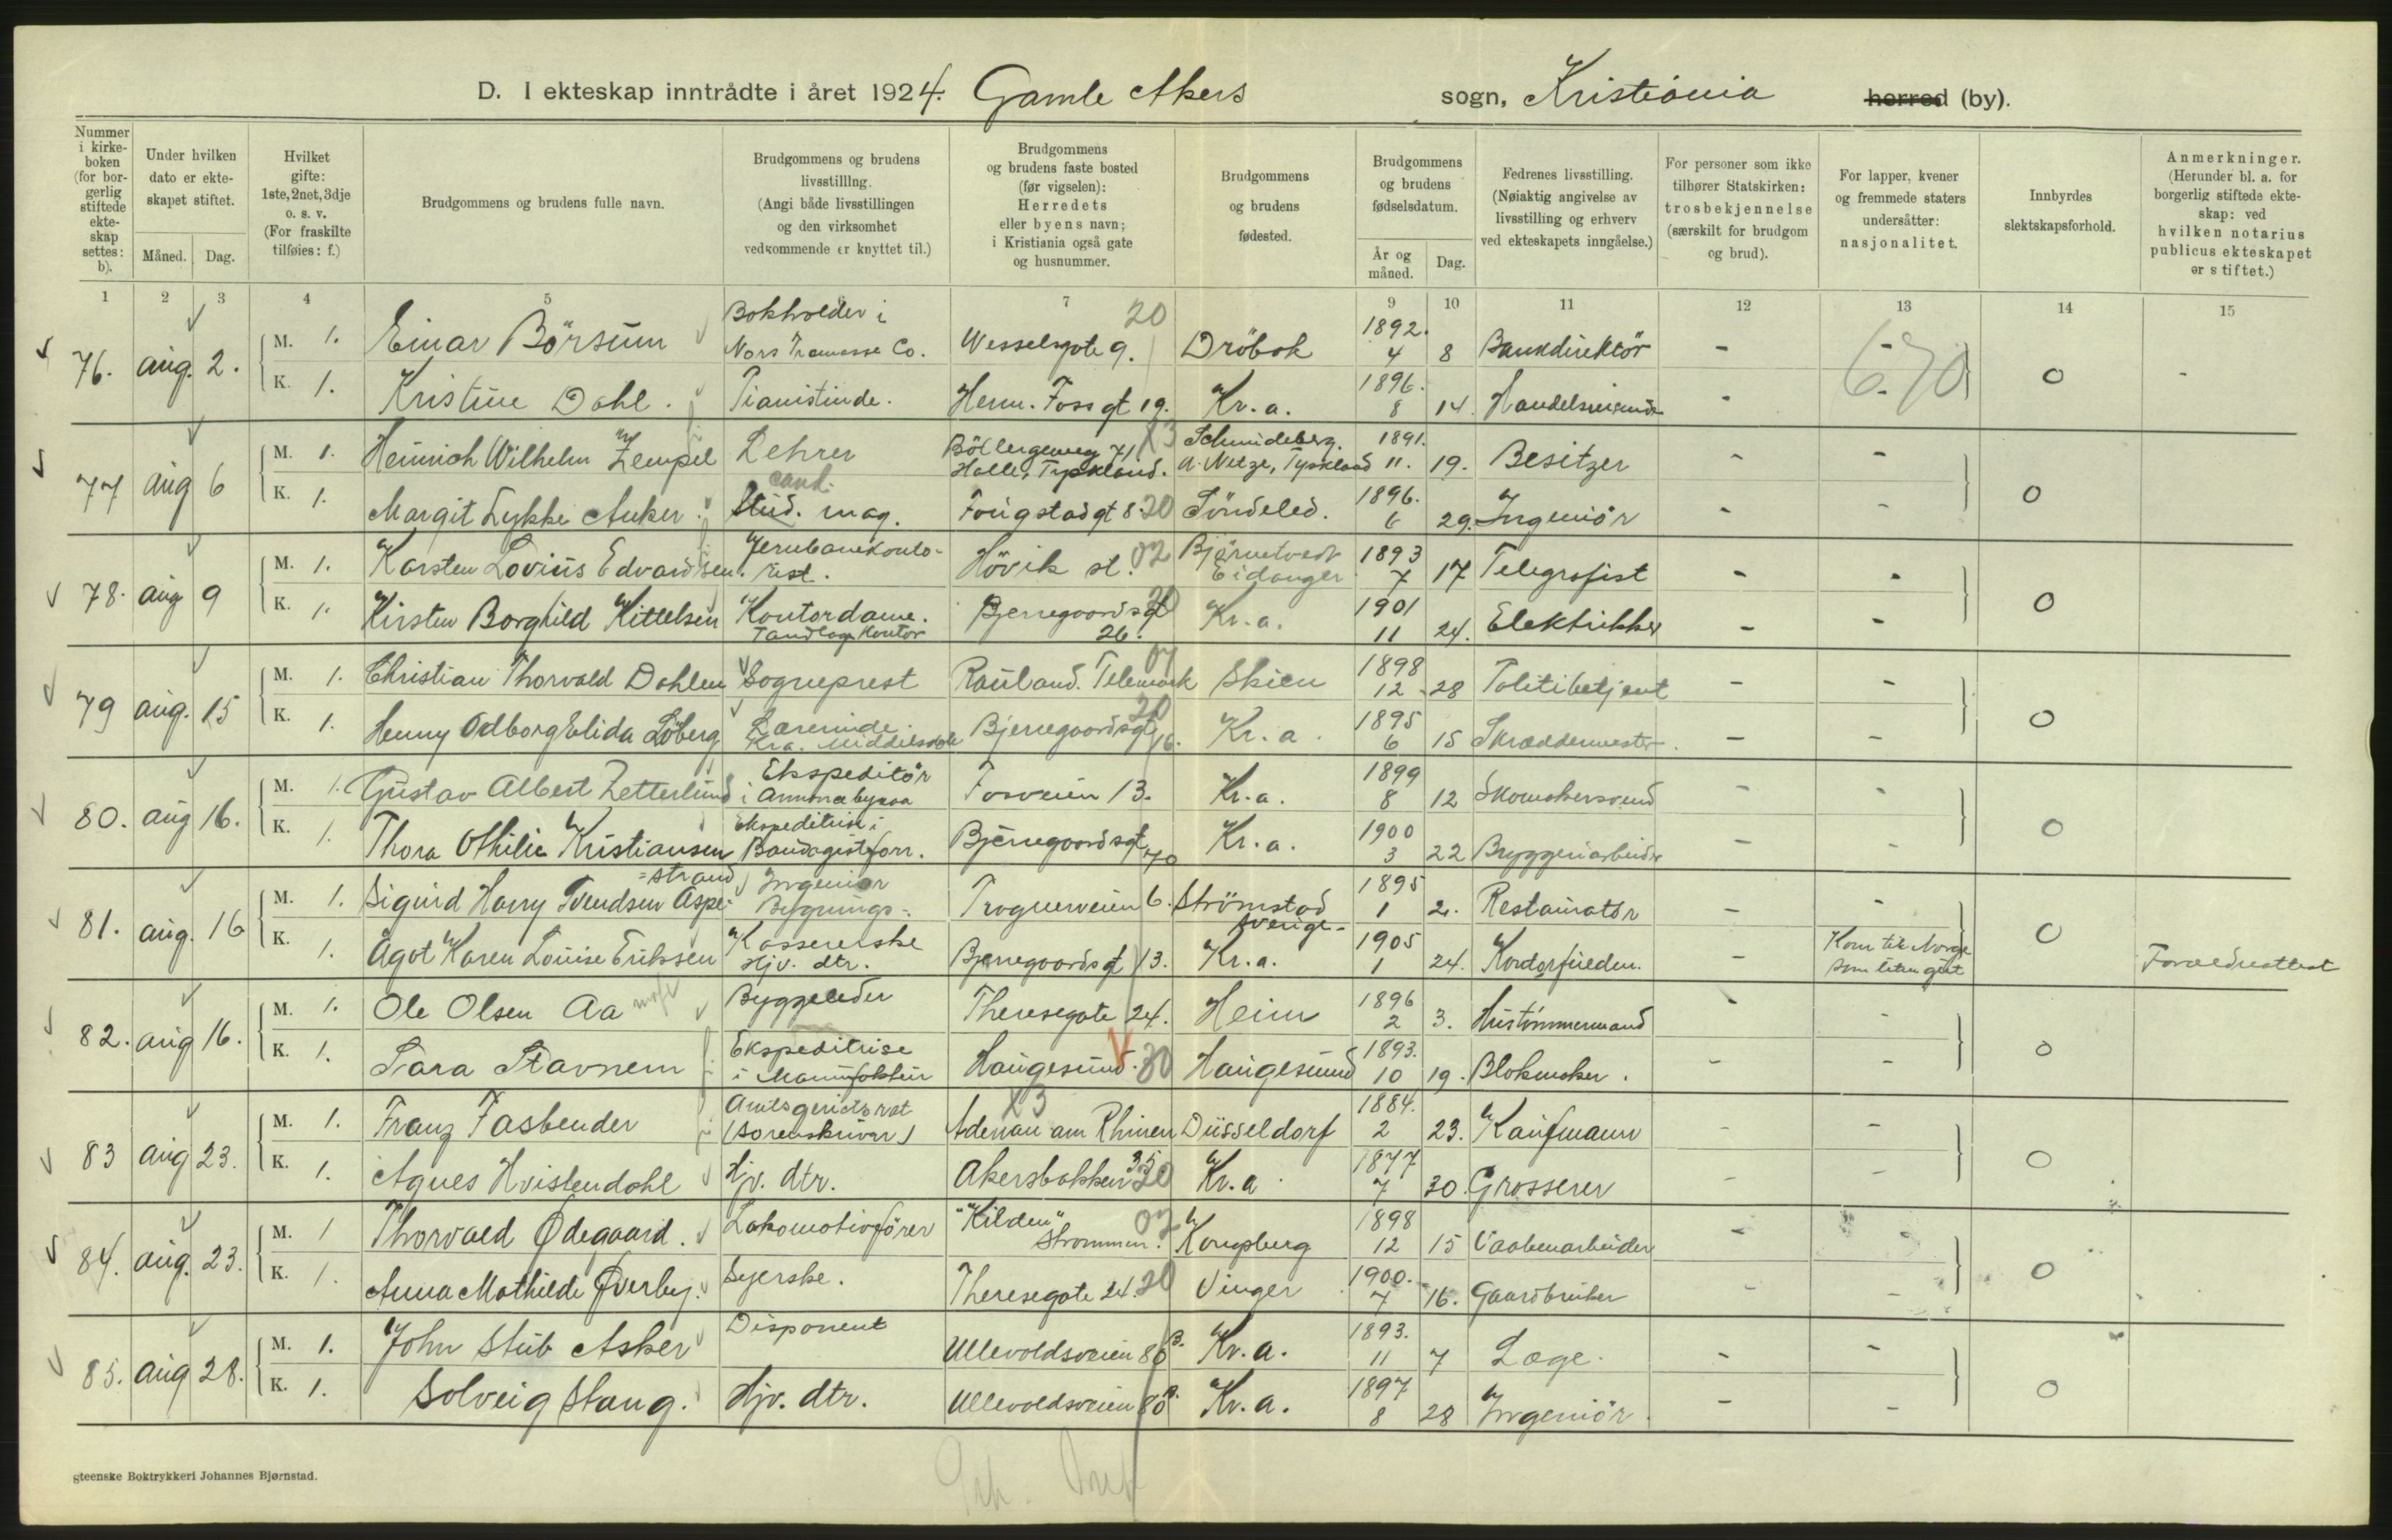 D. I ekteskap inntrådte i året 1924. Gamle Akers sogn, Kristiania herred (by).
Nummer i kirkeboken (for borgerlig stiftede ekteskap settes: b).
Under hvilken dato er ekteskapet stiftet.
Måned. Dag.
Hvilket gifte: 1ste, 2net, 3dje o. s. v. (For fraskilte tilføies: f.)
Brudgommens og brudens fulle navn.
Brudgommens og brudens livsstilllng. (Angi både livsstillingen og den virksomhet vedkommende er knyttet til.)
Brudgommens og brudens faste bosted (før vigselen): Herredets eller byens navn; i Kristiania også gate og husnummer.
Brudgommens og brudens fødested.
Brudgommens og brudens fødselsdatum.
År og måned. Dag.
Fedrenes livsstilling. (Nøiaktig angivelse av livsstilling og erhverv ved ekteskapets inngåelse.)
For personer som ikke tilhører Statskirken: trosbekjennelse (særskilt for brudgom og brud).
For lapper, kvener og fremmede staters undersåtter: nasjonalitet.
Innbyrdes slektskapsforhold.
Anmerkninger. (Herunder bl. a. for borgerlig stiftede ekteskap: ved hvilken notarius publicus ekteskapet er stiftet.)
1 2 3 4 5 7 9 10 11 12 13 14 15
76. aug. 2. M. 1. Einar Börsum Bokholder i Nors Tramasse Co. Wesselsgate 9. 20 Dröbak 1892. 4 8 Bankdirektör - - 0 -
K. 1. Kristine Dahl. Pianistinde. Herm. Foss gt 19. Kr.a. 1896. 8 14. -
77 aug 6 M. 1. Heinrich Wilhelm Zempel Lehrer Böllbergerweg 71 Halle, Tyskland. Schneideberg. a. Netze, Tyskland 1891. 11. 19. Besitzer - - 0
K. 1. Margit Lykke Anker. cand. Stud. mag. Fougstadgt 8. 20 Söndeled. 1896. 6 29. Ingeniör - -
78. aug 9 M. 1. Karsten Lovius Edvardsen. Jernbanekonto- rist. Hövik st. 02 Bjärnetvedt Eidanger 1893 7 17 Telegrafist - - 0
K. 1. Kirsten Borghild Kittelsen Kontordame. Tandlægekontor Bjerregaards gt 26. 20 Kr.a. 1901 11 24. Elektrikker - -
79 aug. 15 M. 1. Christian Thorvald Dahlen Sogneprest Rauland. Telemark 07 Skien 1898 12 28 Politibetjent - - 0
K. 1. Henny Odborg Elida Löberg Lærerinde. Kra. Middelskole Bjerregaardsgt 16. 20 Kr.a. 1895 6 15 Skræddermester. - -
80. aug 16. M. 1. Gustav Albert Zetterlund Ekspeditör i Annoncebyraa Fosveien 13. Kr.a. 1899 8 12 Skomakersvend - - 0
K. 1. Thora Othilie Kristiansen Ekspeditrise i Bandagistforr. Bjerregaardsgt 70 Kr.a. 1900 3 22 Bryggeriarbeider - -
81. aug. 16 M. 1. Sigurd Harry Svendsen Aspe- =strand Ingeniør Bygnings-. Trognerveien 6. Strömstad Sverige- 1895 1 2. Restauratör - - 0
K. 1. Ågot Karen Louise Eriksen Kassererske Hjv. dtr. Bjerregaardsgt 13. Kr.a. 1905 1 24. Kontorfuldm. - Kom til Norge som liten gut Forældreattest
82. aug 16. M. 1. Ole Olsen Aa Byggeleder Theresegate 24. Heim 1896 2 3. Hustömmermand - - 0
K. 1. Sara Stavnem Ekspeditrise i Manufaktur Haugesund. 30 Haugesund 1893. 10 19. Blokmaker. - -
83 aug 23. M. 1. Franz Fasbender Amtsgerichtsrat (Sorenskriver) Adenau am Rhinen Düsseldorf 1884. 2 23. Kaufmann - - 0
K. 1. Agnes Hvistendahl Hjv. dtr. Akersbakken 35 20 Kr.a. 1877 7 30. Grosserer - -
84. aug. 23. M. 1 Thorvald Ødegaard. Lokomotivförer "Kilden" Strømmen. 02 Kongsberg 1898 12 15 Vaabenarbeider - - 0
K. 1. Anna Mathilde Øverby. Syerske. Theresegate 24. 20 Vinger 1900. 7 16. Gaardbruker - -
85. aug 28. M. 1. John Stub Asker Disponent Ullevoldsveien 80 B. Kr.a. 1893. 11 7 Læge. - - 0
K. 1. Solveig Stang. Hjv. dtr. Ullevoldsveien 80 B. Kr.a. 1897 8 28 Ingeniör. - -
gteenske Boktrykkeri Johannes Bjørnstad.